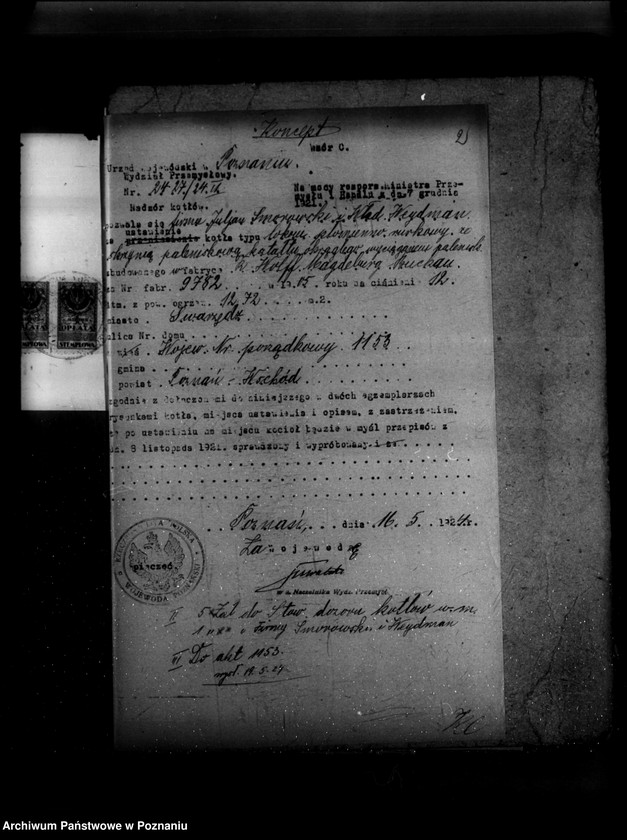 Koncept
2)
wzór C.
Urząd Wojewódzki w Poznaniu.
Wydział Przemysłowy.
Nr. 2427/24 III
Na mocy rozporz. Ministra Prze-
mysłu i Handlu z dn. 7 grudnia
1921.
Nadzór kotłów.
pozwala się firmie Juljan Smorowski i Wład. Heydman
ustawienie
na przeniesienie kotła typu lokom. płomienno-rurkowy, ze
skrzynią paleniskową kształtu okrągłego wyciąganem palenisk.
zbudowanego w fabryce R. Wolff Magdeburg Buckau.
za Nr fabr. 9782 . . . . w 19.. roku na ciśnienie 12.
atm. z pow. ogrzew. 12,72 . . . . m.2.
miasto . Swarzędz
ulica Nr. domu
Wojew. Nr. porządkowy 1153
gmina
powiat . Poznań - Wschód
zgodnie z dołączonemi do niniejszego w dwóch egzemplarzach
rysunkami kotła, miejsca ustawienia i opisem, z zastrzeżeniem,
że po ustawieniu na miejscu kocioł będzie w myśl przepisów z
dn. 8 listopada 1921. sprawdzony i wypróbowany i że
Poznań, . . . dnia 16. 5. . 1924 r.
Za wojewodę
RZECZPOSPOLITA POLSKA
WOJEWODA POZNAŃSKI
pieczęć
w z. Naczelnika Wydz. Przemysł.
II 5 zał. do Stow. dozoru kotłów w m.
1 " " firmy Smorowski i Heydman
VI Do akt 1153.
wysł. 19.5.24
OPŁATA
STEMPLOWA
Archiwum Państwowe w Poznaniu